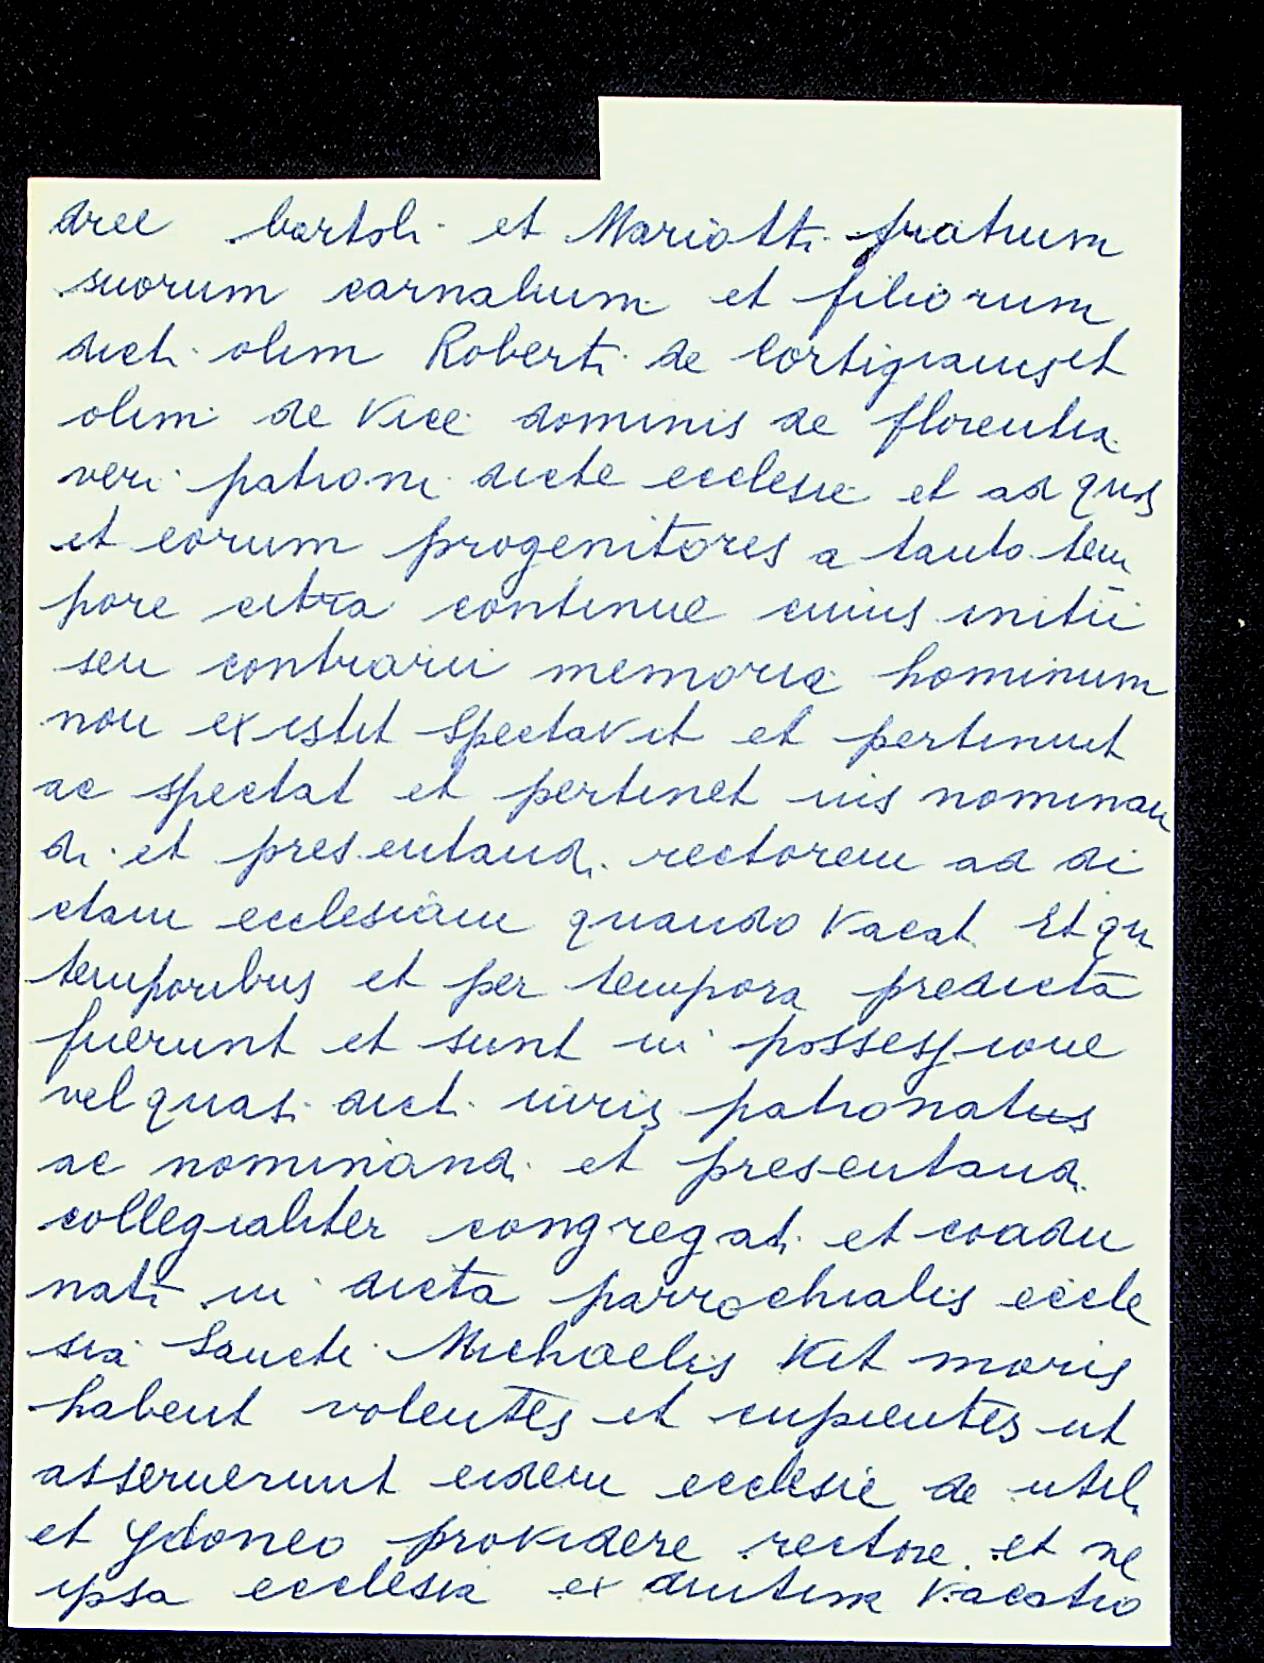 dree bartoli et Mariotti fratrum
suorum carnalium et filiorum
dicti olim Roberti de Cortigianis et
olim de Vice dominis de florentia
veri patroni dicte ecclesie et ad quos
et eorum progenitores a tanto tem
pore citra continue cuius initii
seu contrarii memoria hominum
non existit spectavit et pertinuit
ac spectat et pertinet ius nominan
di et presentandi rectorem ad di
ctam ecclesiam quando vacat Et qui
temporibus et per tempora predicta
fuerunt et sunt in possessione
vel quasi dicti iuris patronatus
ac nominandi et presentandi
collegialiter congregati et coadu
nati in dicta parrochialis eccle
sia Sancti Michaelis Vit moris
habent volentes et cupientes ut
asseruerunt eidem ecclesie de utili
et ydoneo providere rectore et ne
ipsa ecclesia ex diutina vacatio